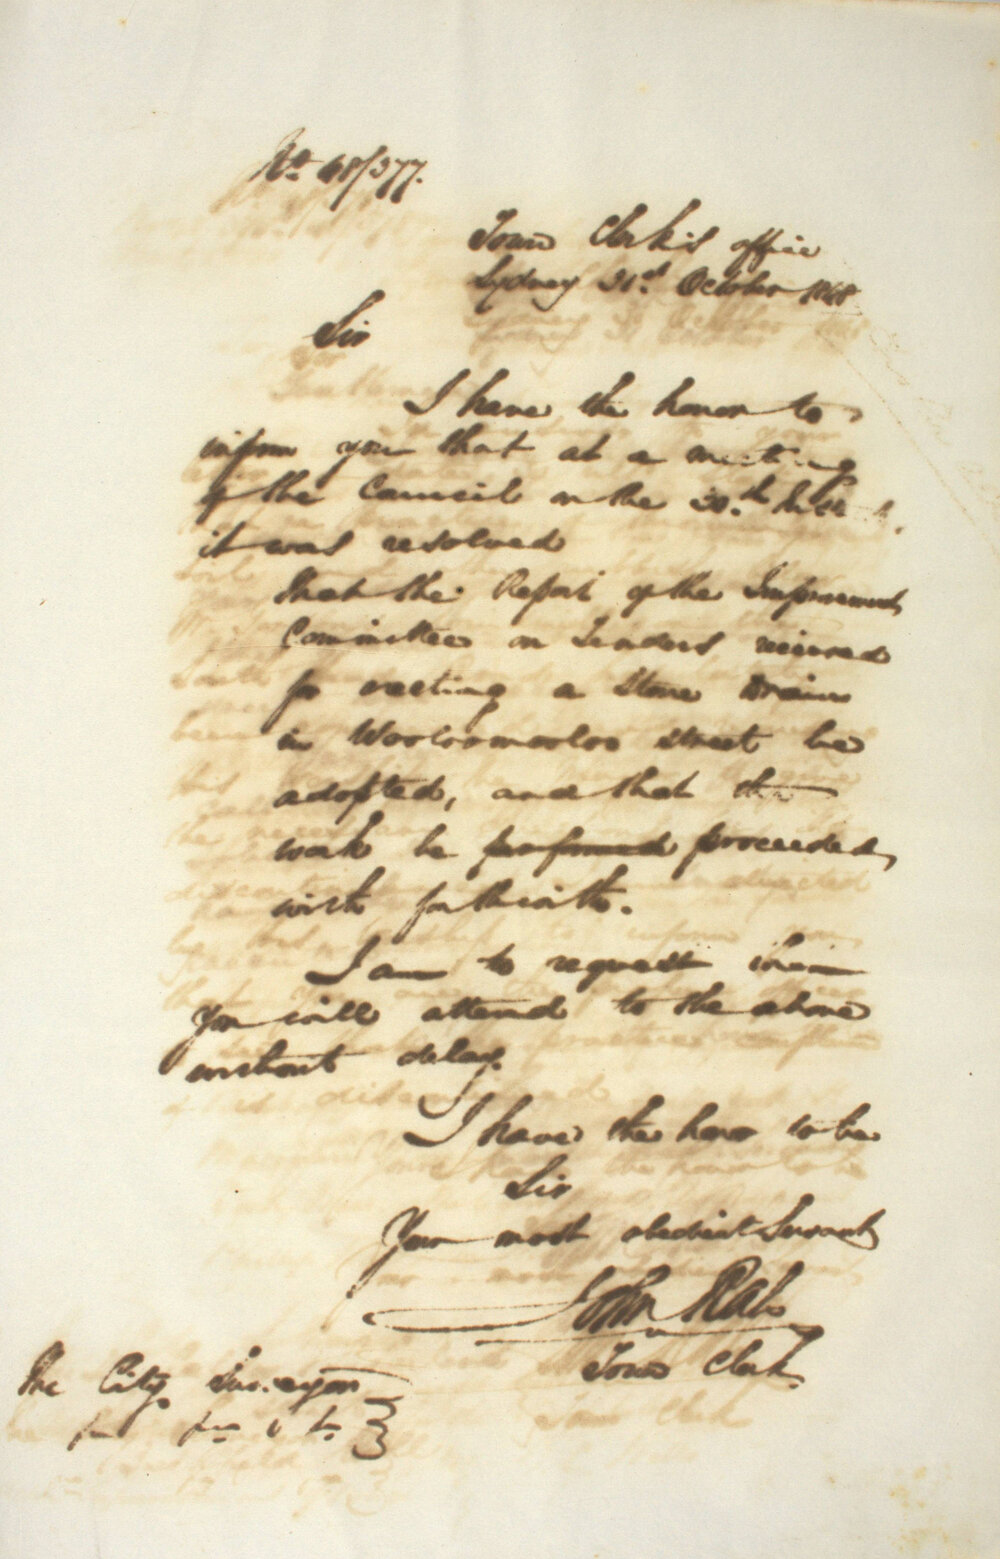 No 48/377.
Town Clerk's office
Sydney 31st October 1848
Sir
I have the honor to
inform you that at a meeting
of the Council on the 30th
it was resolved
That the Report of the Improvement
Committee on Tenders received
for erecting a Stone Drain
in Woolloomooloo street be
adopted, and that the
work be performed proceeded
with forthwith.
I am to request
You will attend to the above
without delay.
I have the honor to be
Sir
Your most obedient Servant
John Rae
Town Clerk.
The City Surveyor